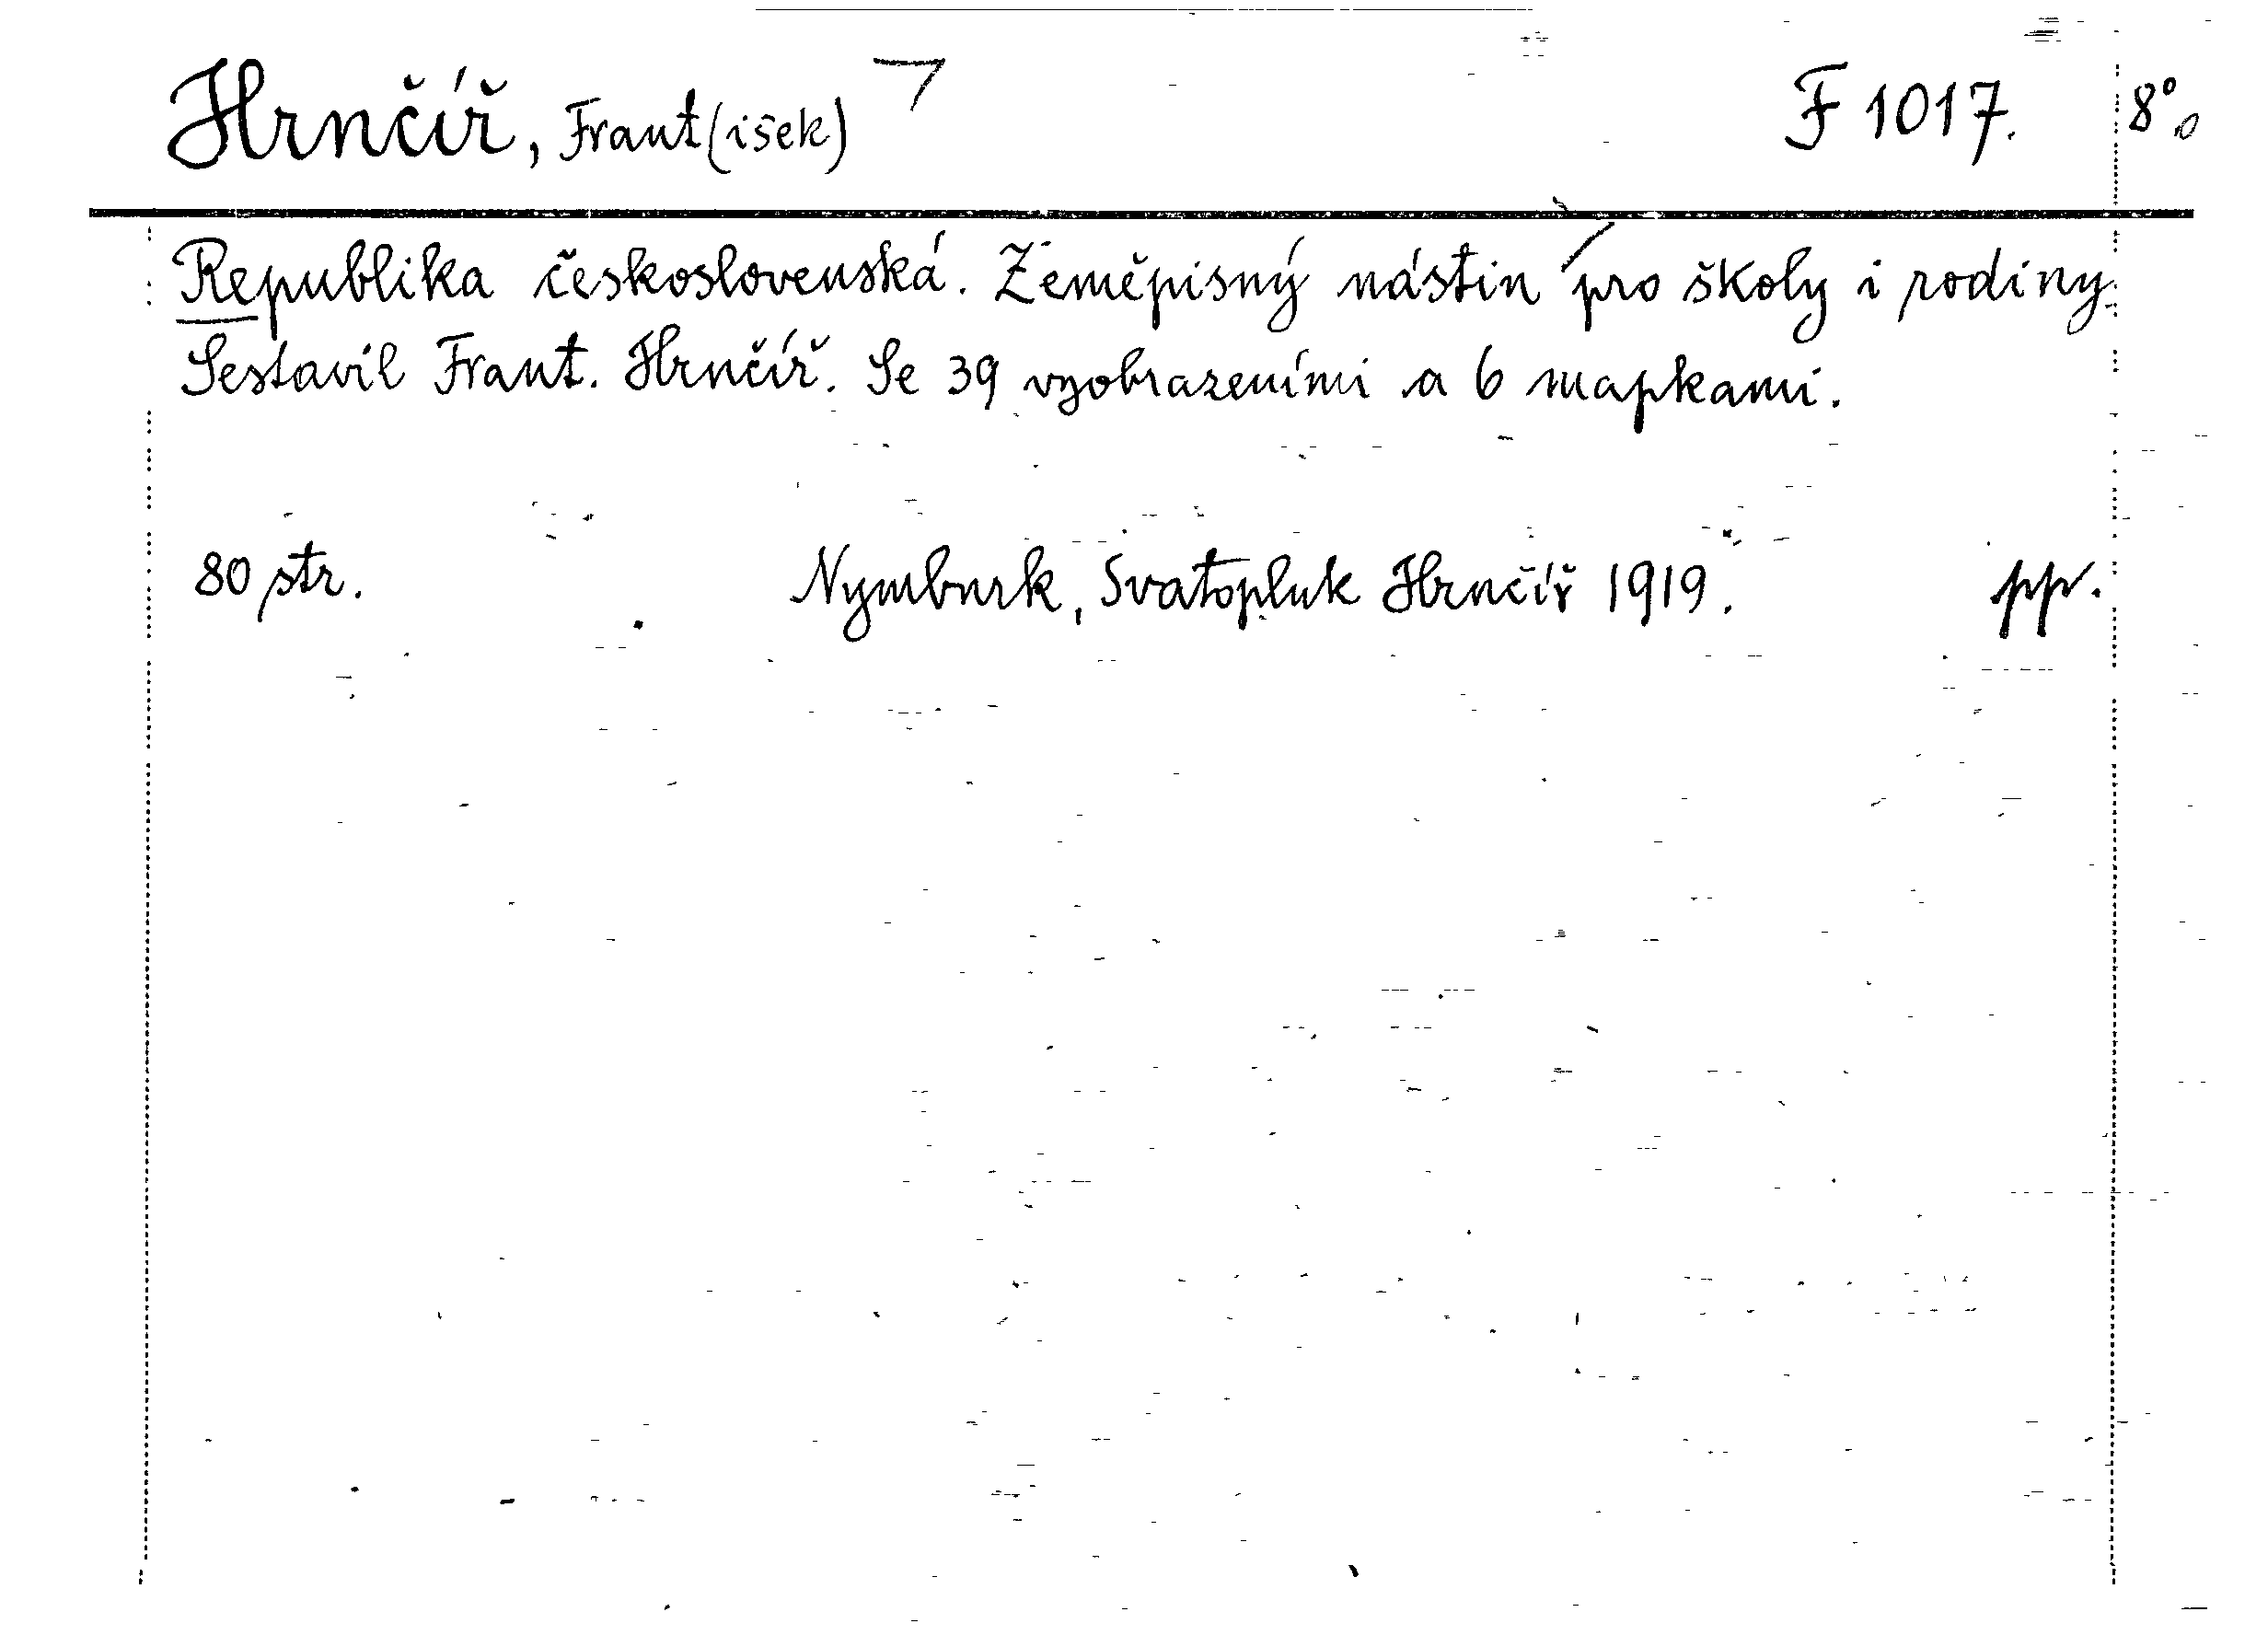 Hrnčíř, Frant(išek) F 1017. 8°
Republika československá. Zeměpisný nástin pro školy i rodiny.
Sestavil Frant. Hrnčíř. Se 39 vyobrazeními a 6 mapkami.
80 str. Nymburk, Svatopluk Hrnčíř 1919. pp.